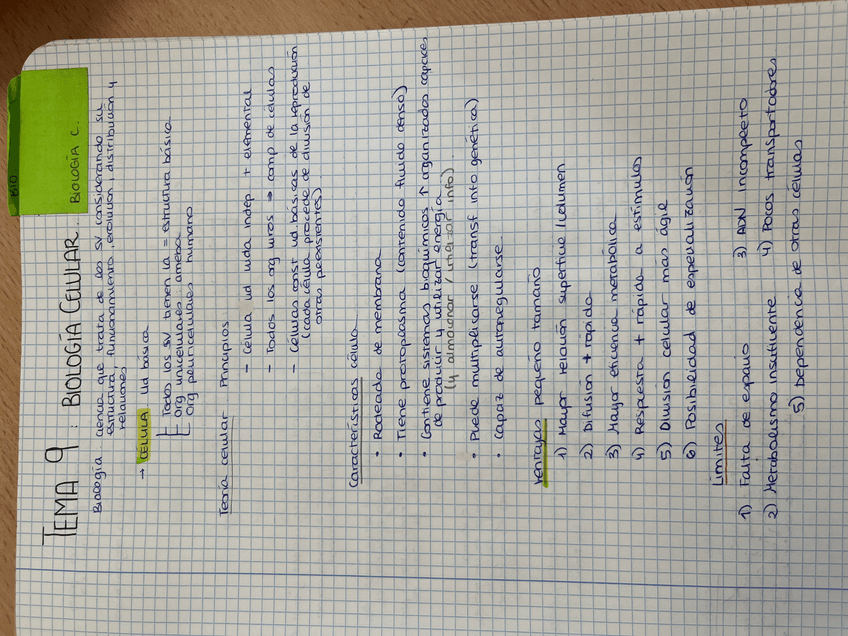 BIO
BIOLOGÍA C.
TEMA 9: BIOLOGÍA CELULAR.
Biología ciencia que trata de los SV considerando su
estructura, funcionamiento, evolución, distribución y
relaciones
→ CÉLULA Ud básica
Todos los SV tienen la = estructura básica
Org unicelulares ameba
Org pluricelulares humano
Teoría celular Principios
- Célula ud vida indep + elemental
- Todos los org vivos → comp de células
- Células const ud básicas de la reproducción
(cada célula procede de división de
otras preexistentes)
Características célula
• Rodeada de membrana
• Tiene protoplasma (contenido fluido denso)
• Contiene sistemas bioquímicos ↑ organizados capaces
de producir y utilizar energía
(y almacenar / utilizar info)
• Puede multiplicarse (transf info genética)
• Capaz de autorregularse.
Ventajas pequeño tamaño
1) Mayor relación superficie / volumen
2) Difusión + rápida
3) Mayor eficiencia metabólica
4) Respuesta + rápida a estímulos
5) División celular más ágil
6) Posibilidad de especialización
Límites
1) Falta de espacio 3) ADN incompleto
2) Metabolismo insuficiente 4) Pocos transportadores
5) Dependencia de otras células